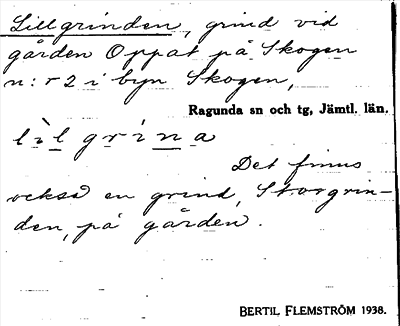 Lillgrinden, grind vid
gården Oppat på Skogen
n:r 2 i byn Skogen,
Ragunda sn och tg, Jämtl. län.
lìlgrina
Det finns
också en grind, Storgrin-
den, på gården.
BERTIL FLEMSTRÖM 1938.